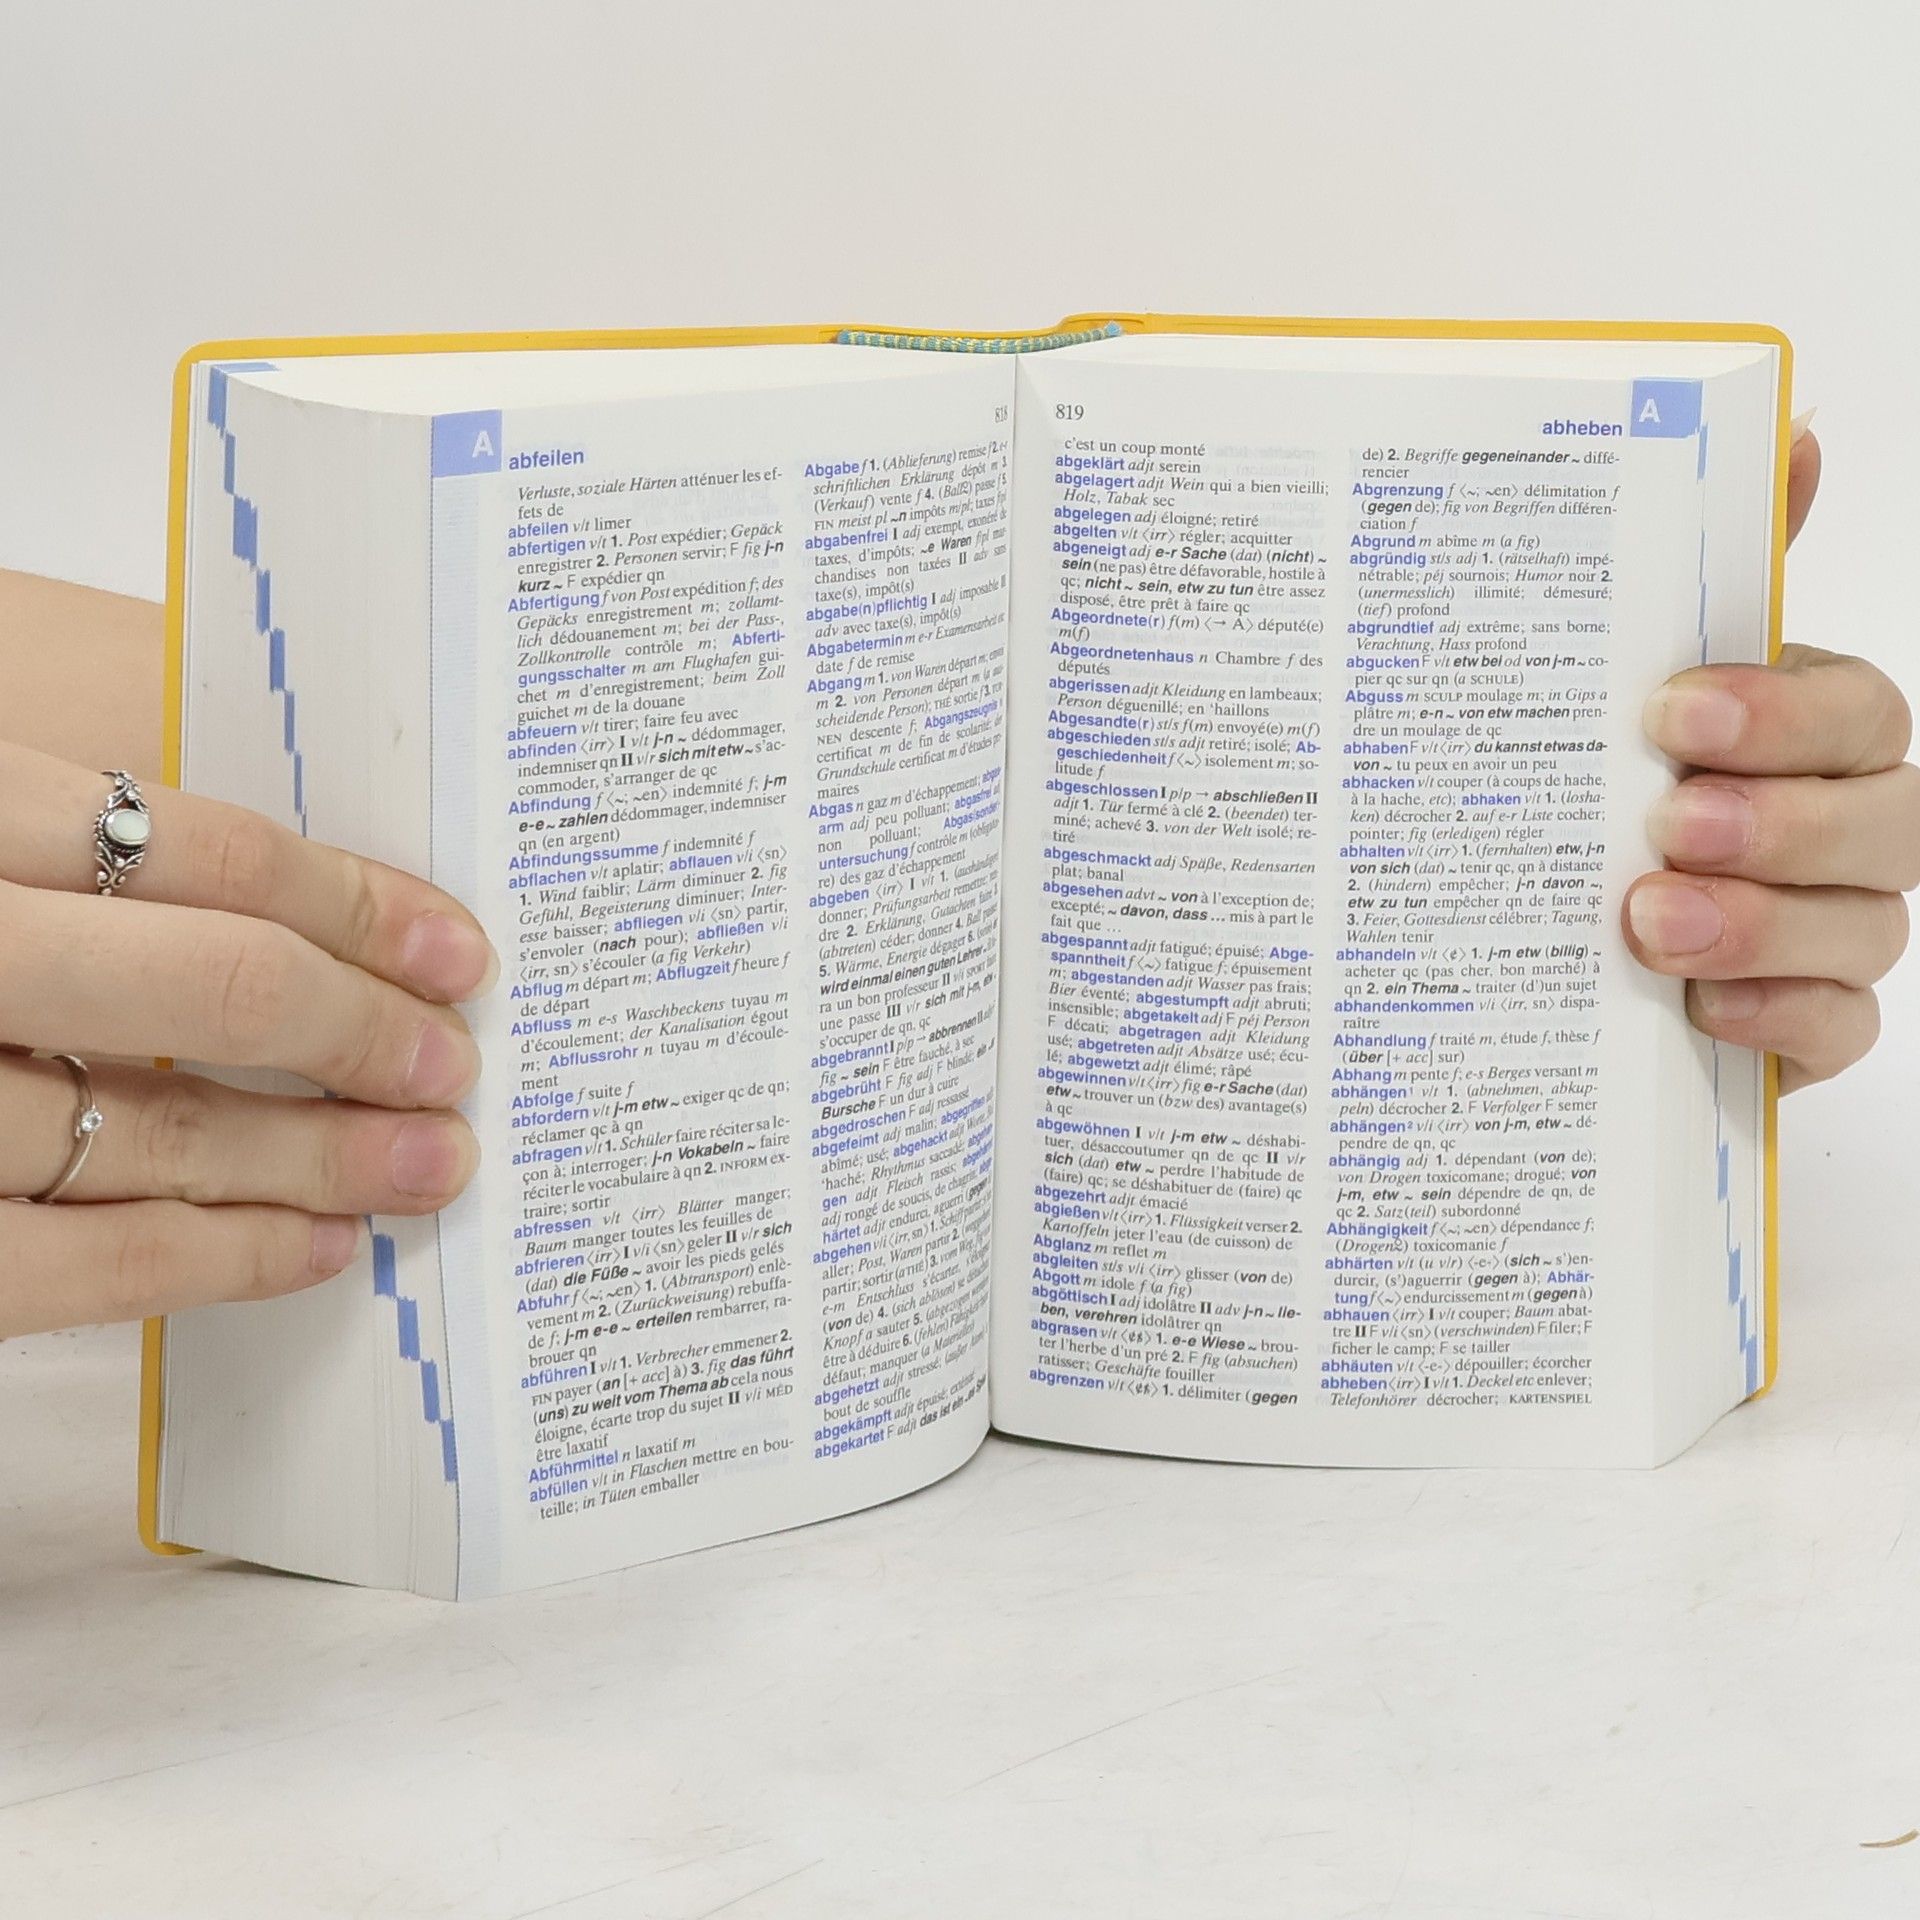 A
abfeilen
818
Verluste, soziale Härten atténuer les ef-
fets de
abfeilen v/t limer
abfertigen v/t 1. Post expédier; Gepäck
enregistrer 2. Personen servir; F fig j-n
kurz ~ F expédier qn
Abfertigung f von Post expédition f; des
Gepäcks enregistrement m; zollamt-
lich dédouanement m; bei der Pass-,
Zollkontrolle contrôle m; Abferti-
gungsschalter m am Flughafen gui-
chet m d'enregistrement; beim Zoll
guichet m de la douane
abfeuern v/t tirer; faire feu avec
abfinden ⟨irr⟩ I v/t j-n ~ dédommager,
indemniser qn II v/r sich mit etw ~ s'ac-
commoder, s'arranger de qc
Abfindung f ⟨~; ~en⟩ indemnité f; j-m
e-e ~ zahlen dédommager, indemniser
qn (en argent)
Abfindungssumme f indemnité f
abflachen v/t aplatir; abflauen v/i ⟨sn⟩
1. Wind faiblir; Lärm diminuer 2. fig
Gefühl, Begeisterung diminuer; Inter-
esse baisser; abfliegen v/i ⟨sn⟩ partir,
s'envoler (nach pour); abfließen v/i
⟨irr, sn⟩ s'écouler (a fig Verkehr)
Abflug m départ m; Abflugzeit f heure f
de départ
Abfluss m e-s Waschbeckens tuyau m
d'écoulement; der Kanalisation égout
m; Abflussrohr n tuyau m d'écoule-
ment
Abfolge f suite f
abfordern v/t j-m etw ~ exiger qc de qn;
réclamer qc à qn
abfragen v/t 1. Schüler faire réciter sa le-
çon à; interroger; j-n Vokabeln ~ faire
réciter le vocabulaire à qn 2. INFORM ex-
traire; sortir
abfressen v/t ⟨irr⟩ Blätter manger;
Baum manger toutes les feuilles de
abfrieren ⟨irr⟩ I v/i ⟨sn⟩ geler II v/r sich
(dat) die Füße ~ avoir les pieds gelés
Abfuhr f ⟨~; ~en⟩ 1. (Abtransport) enlè-
vement m 2. (Zurückweisung) rebuffa-
de f; j-m e-e ~ erteilen rembarrer, ra-
brouer qn
abführen I v/t 1. Verbrecher emmener 2.
FIN payer (an [+ acc] à) 3. fig das führt
(uns) zu weit vom Thema ab cela nous
éloigne, écarte trop du sujet II v/i MÉD
être laxatif
Abführmittel n laxatif m
abfüllen v/t in Flaschen mettre en bou-
teille; in Tüten emballer
Abgabe f 1. (Ablieferung) remise f 2. e-r
schriftlichen Erklärung dépôt m 3.
(Verkauf) vente f 4. (Ball2) passe f 5.
FIN meist pl ~n impôts m/pl; taxes f/pl
abgabenfrei I adj exempt, exonéré de
taxes, d'impôts; ~e Waren f/pl mar-
chandises non taxées II adv sans
taxe(s), impôt(s)
abgabe(n)pflichtig I adj imposable II
adv avec taxe(s), impôt(s)
Abgabetermin m e-r Examensarbeit etc
date f de remise
Abgang m 1. von Waren départ m; envoi
m 2. von Personen départ m (a aus-
scheidende Person); THÉ sortie f 3. TUR-
NEN descente f; Abgangszeugnis n
certificat m de fin de scolarité; der
Grundschule certificat m d'études pri-
maires
Abgas n gaz m d'échappement; abgas-
arm adj peu polluant; abgasfrei adj
non polluant; Abgas(sonder)-
untersuchung f contrôle m (obligatoi-
re) des gaz d'échappement
abgeben ⟨irr⟩ I v/t 1. (aushändigen)
donner; Prüfungsarbeit remettre; ren-
dre 2. Erklärung, Gutachten faire 3.
(abtreten) céder; donner 4. Ball passer
5. Wärme, Energie dégager 6.
wird einmal einen guten Lehrer ~
ra un bon professeur II v/i SPORT
une passe III v/r sich mit j-m, etw ~
s'occuper de qn, qc
abgebrannt I p/p → abbrennen II adjt
fig ~ sein F être fauché, à sec
abgebrüht F fig adj F blindé; ein
Bursche F un dur à cuire
abgedroschen F adj ressassé
abgefeimt adj malin; abgegriffen
abîmé; usé; abgehackt adjt Worte,
'haché; Rhythmus saccadé;
gen adjt Fleisch rassis;
adj rongé de soucis, de chagrin;
härtet adjt endurci, aguerri (gegen
abgehen v/i ⟨irr, sn⟩ 1. Schiff
aller; Post, Waren partir 2.
partir; sortir (a THÉ) 3. vom Weg,
e-m Entschluss s'écarter,
(von de) 4. (sich ablösen) se détacher;
Knopf a sauter 5. (abgezogen werden)
être à déduire 6. (fehlen)
défaut; manquer (a Material)
abgehetzt adjt stressé;
bout de souffle
abgekämpft adjt épuisé; exténué
abgekartet F adjt das ist ein
819
abheben
A
c'est un coup monté
abgeklärt adjt serein
abgelagert adjt Wein qui a bien vieilli;
Holz, Tabak sec
abgelegen adj éloigné; retiré
abgelten v/t ⟨irr⟩ régler; acquitter
abgeneigt adj e-r Sache (dat) (nicht) ~
sein (ne pas) être défavorable, hostile à
qc; nicht ~ sein, etw zu tun être assez
disposé, être prêt à faire qc
Abgeordnete(r) f(m) ⟨→ A⟩ député(e)
m(f)
Abgeordnetenhaus n Chambre f des
députés
abgerissen adjt Kleidung en lambeaux;
Person déguenillé; en 'haillons
Abgesandte(r) st/s f(m) envoyé(e) m(f)
abgeschieden st/s adjt retiré; isolé; Ab-
geschiedenheit f ⟨~⟩ isolement m; so-
litude f
abgeschlossen I p/p → abschließen II
adjt 1. Tür fermé à clé 2. (beendet) ter-
miné; achevé 3. von der Welt isolé; re-
tiré
abgeschmackt adj Späße, Redensarten
plat; banal
abgesehen advt ~ von à l'exception de;
excepté; ~ davon, dass ... mis à part le
fait que ...
abgespannt adjt fatigué; épuisé; Abge-
spanntheit f ⟨~⟩ fatigue f; épuisement
m; abgestanden adjt Wasser pas frais;
Bier éventé; abgestumpft adjt abruti;
insensible; abgetakelt adj F péj Person
F décati; abgetragen adjt Kleidung
usé; abgetreten adjt Absätze usé; écu-
lé; abgewetzt adjt élimé; râpé
abgewinnen v/t ⟨irr⟩ fig e-r Sache (dat)
etw ~ trouver un (bzw des) avantage(s)
à qc
abgewöhnen I v/t j-m etw ~ déshabi-
tuer, désaccoutumer qn de qc II v/r
sich (dat) etw ~ perdre l'habitude de
(faire) qc; se déshabituer de (faire) qc
abgezehrt adjt émacié
abgießen v/t ⟨irr⟩ 1. Flüssigkeit verser 2.
Kartoffeln jeter l'eau (de cuisson) de
Abglanz m reflet m
abgleiten st/s v/i ⟨irr⟩ glisser (von de)
Abgott m idole f (a fig)
abgöttisch I adj idolâtre II adv j-n ~ lie-
ben, verehren idolâtrer qn
abgrasen v/t ⟨¢$⟩ 1. e-e Wiese ~ brou-
ter l'herbe d'un pré 2. F fig (absuchen)
ratisser; Geschäfte fouiller
abgrenzen v/t ⟨¢$⟩ 1. délimiter (gegen
de) 2. Begriffe gegeneinander ~ diffé-
rencier
Abgrenzung f ⟨~; ~en⟩ délimitation f
(gegen de); fig von Begriffen différen-
ciation f
Abgrund m abîme m (a fig)
abgründig st/s adj 1. (rätselhaft) impé-
nétrable; péj sournois; Humor noir 2.
(unermesslich) illimité; démesuré;
(tief) profond
abgrundtief adj extrême; sans borne;
Verachtung, Hass profond
abgucken F v/t etw bei od von j-m ~ co-
pier qc sur qn (a SCHULE)
Abguss m SCULP moulage m; in Gips a
plâtre m; e-n ~ von etw machen pren-
dre un moulage de qc
abhaben F v/t ⟨irr⟩ du kannst etwas da-
von ~ tu peux en avoir un peu
abhacken v/t couper (à coups de hache,
à la hache, etc); abhaken v/t 1. (losha-
ken) décrocher 2. auf e-r Liste cocher;
pointer; fig (erledigen) régler
abhalten v/t ⟨irr⟩ 1. (fernhalten) etw, j-n
von sich (dat) ~ tenir qc, qn à distance
2. (hindern) empêcher; j-n davon ~,
etw zu tun empêcher qn de faire qc
3. Feier, Gottesdienst célébrer; Tagung,
Wahlen tenir
abhandeln v/t ⟨¢⟩ 1. j-m etw (billig) ~
acheter qc (pas cher, bon marché) à
qn 2. ein Thema ~ traiter (d')un sujet
abhandenkommen v/i ⟨irr, sn⟩ dispa-
raître
Abhandlung f traité m, étude f, thèse f
(über [+ acc] sur)
Abhang m pente f; e-s Berges versant m
abhängen¹ v/t 1. (abnehmen, abkup-
peln) décrocher 2. F Verfolger F semer
abhängen² v/i ⟨irr⟩ von j-m, etw ~ dé-
pendre de qn, qc
abhängig adj 1. dépendant (von de);
von Drogen toxicomane; drogué; von
j-m, etw ~ sein dépendre de qn, de
qc 2. Satz(teil) subordonné
Abhängigkeit f ⟨~; ~en⟩ dépendance f;
(Drogen2) toxicomanie f
abhärten v/t (u v/r) ⟨-e-⟩ (sich ~ s')en-
durcir, (s')aguerrir (gegen à); Abhär-
tung f ⟨~⟩ endurcissement m (gegen à)
abhauen ⟨irr⟩ I v/t couper; Baum abat-
tre II F v/i ⟨sn⟩ (verschwinden) F filer; F
ficher le camp; F se tailler
abhäuten v/t ⟨-e-⟩ dépouiller; écorcher
abheben ⟨irr⟩ I v/t 1. Deckel etc enlever;
Telefonhörer décrocher; KARTENSPIEL